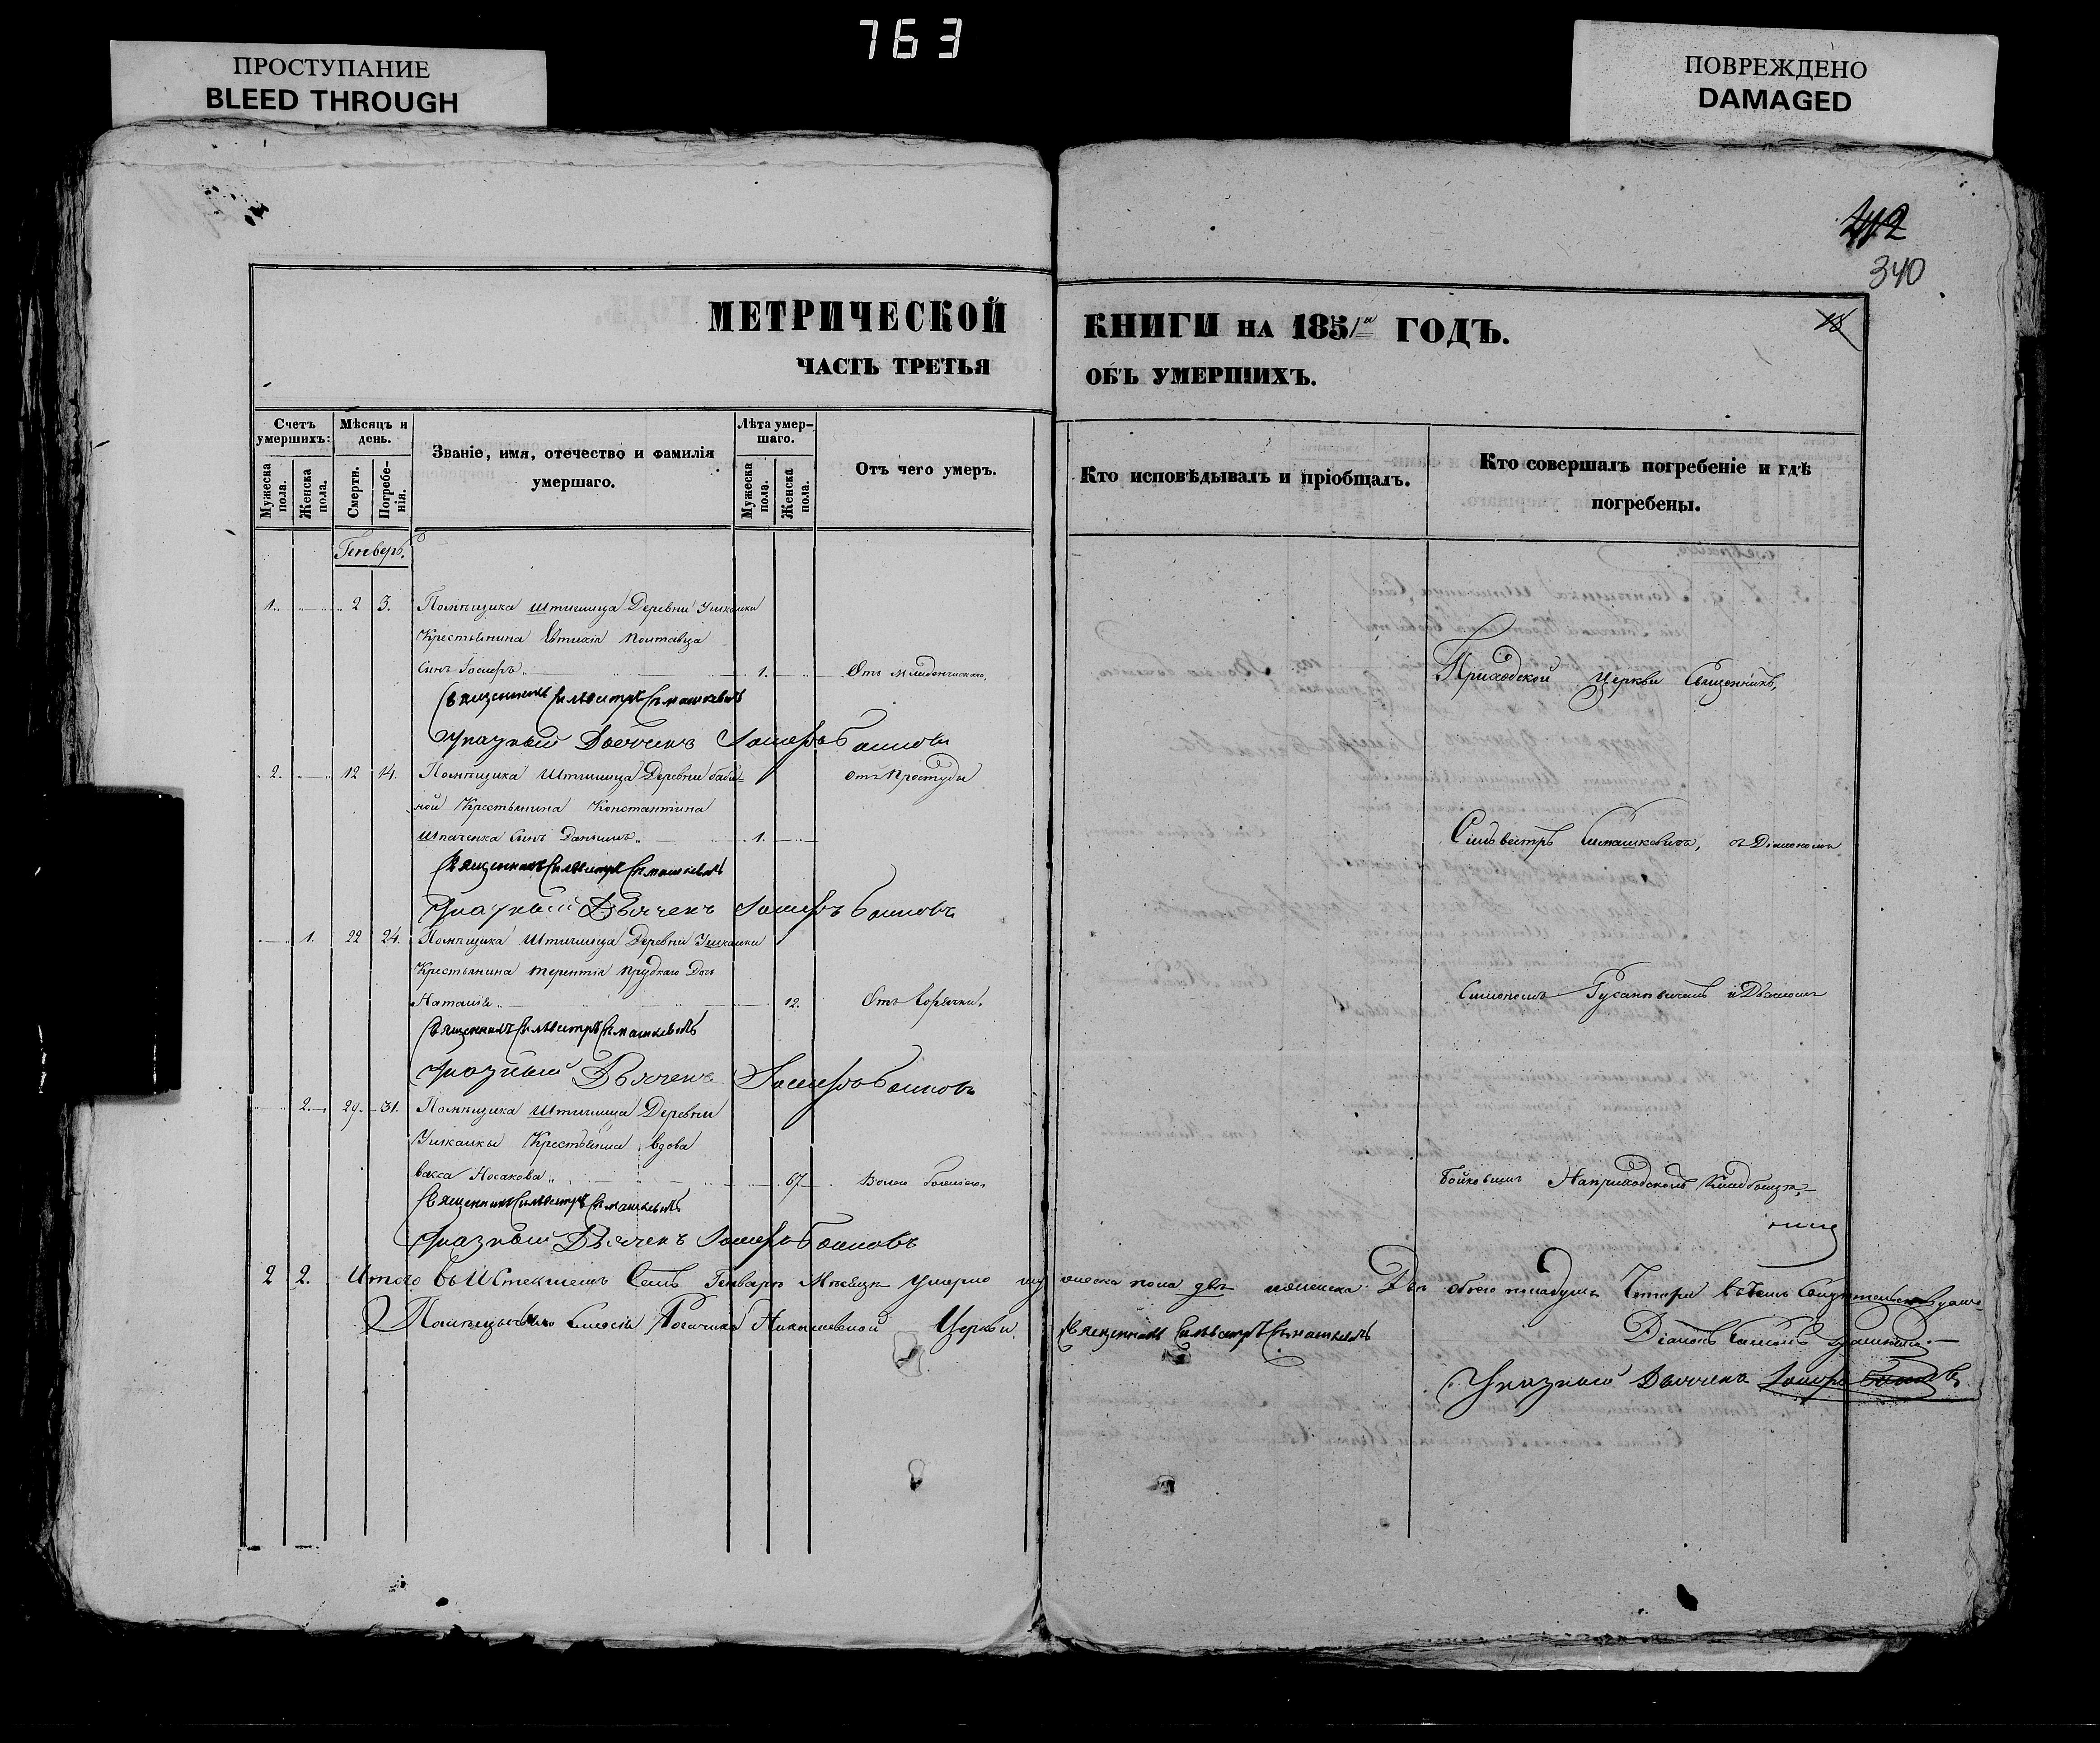 763
ПРОСТУПАНИЕ
BLEED THROUGH
ПОВРЕЖДЕНО
DAMAGED
412
340
18
МЕТРИЧЕСКОЙ КНИГИ НА 1851го ГОДЪ.
ЧАСТЬ ТРЕТЬЯ ОБЪ УМЕРШИХЪ.
Счетъ умершихъ:
Мужеска пола.
Женска пола.
Мѣсяцъ и день.
Смерти.
Погребе-нія.
Званіе, имя, отечество и фамилія
умершаго.
Лѣта умер-шаго.
Мужеска пола.
Женска пола.
Отъ чего умеръ.
Кто исповѣдывалъ и пріобщалъ.
Кто совершалъ погребеніе и гдѣ
погребены.
Генварь.
1. 2 3. Помѣщика Штиглица Деревни Ушкалки
Крестьянина Евтихія Полтавца
Сынъ Іосифъ 1. Отъ младенческаго.
Священникъ Сильвестръ Симашкевичъ
Указный Дьячекъ Іосифъ Бойковъ
Приходской Церкви Священникъ,
2. 12 14. Помѣщика Штиглица Деревни Баби-
ной Крестьянина Константина
Шпаченка Сынъ Даніилъ 1.
Отъ простуды
Священникъ Сильвестръ Симашкевичъ
Указный Дьячекъ Іосифъ Бойковъ
Сильвестръ Симашкевичъ, съ Діакономъ
1. 22 24. Помѣщика Штиглица Деревни Ушкалки
Крестьянина Терентія Прудкаго Дочь
Наталія 12. Отъ Горячки.
Священникъ Сильвестръ Симашкевичъ
Указный Дьячекъ Іосифъ Бойковъ
Симономъ и Дьячкомъ
2. 29 31. Помѣщика Штиглица Деревни
Ушкалки Крестьянка вдова
Васса Носакова 67. Волею Божіею
Священникъ Сильвестръ Симашкевичъ
Указный Дьячекъ Іосифъ Бойковъ
Бойковымъ На приходскомъ Кладбищѣ,
2 2. Итого въ Истекшемъ Семъ Генварѣ Мѣсяцѣ умерло мужеска пола два женска Двѣ обоего пола душъ Четыре въ чемъ Свидѣтельствуемъ
Церкви Священникъ Сильвестръ Симашкевичъ
Діаконъ Симонъ
Указный Дьячекъ Іосифъ Бойковъ